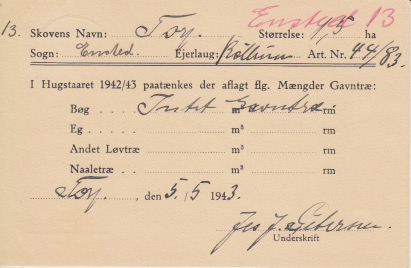 Ensted 13
13. Skovens Navn: Toy. Størrelse: 1,5 ha
Sogn: Ensted. Ejerlaug: Art. Nr. 44/83.
I Hugstaaret 1942/43 paatænkes der aflagt flg. Mængder Gavntræ:
Bøg . . . . Intet Gavntræ m³ rm
Eg . . . . . m³ rm
Andet Løvtræ m³ rm
Naaletræ . . m³ rm
Toy. , den 5/5 1943.
Jes J. Petersen.
Underskrift